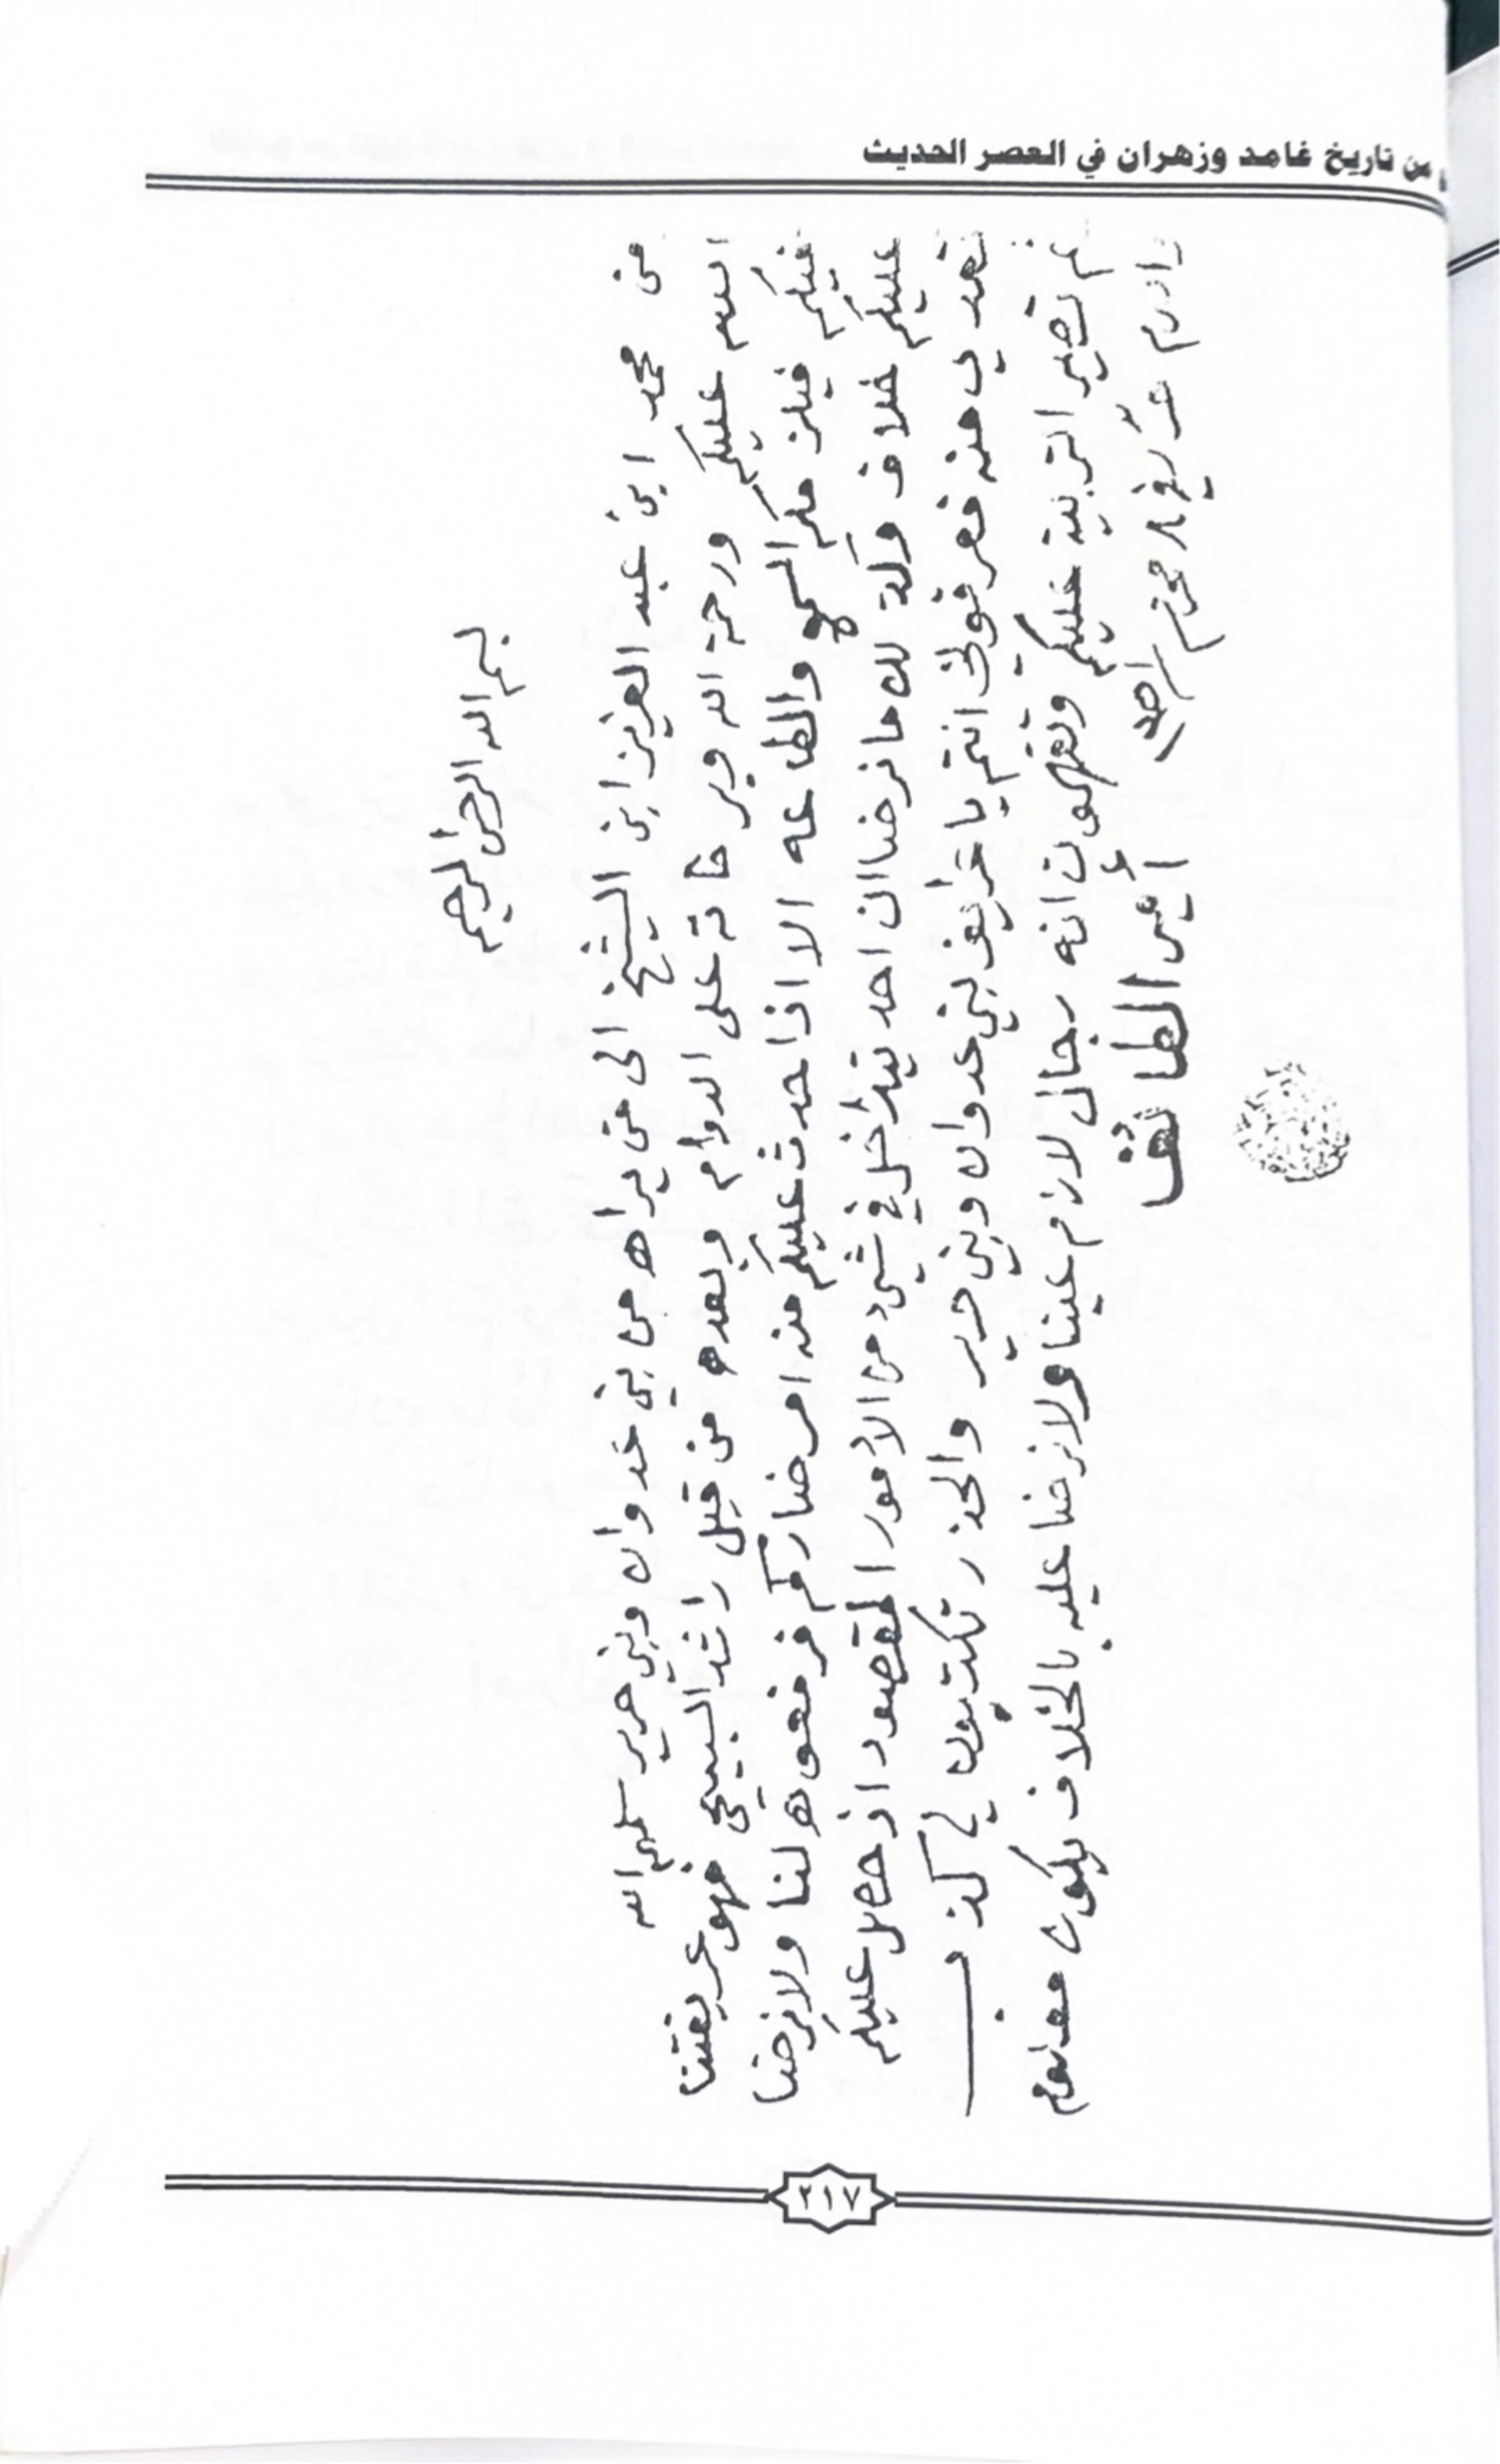 من تاريخ غامد وزهران في العصر الحديث
بسم الله الرحمن الرحيم
من محمد ابن عبد العزيز ابن الشيخ الى من يراه من بني عدوان وبني حرير سلمهم الله
السلام عليكم ورحمة الله وبركاته على الدوام وبعده من قبل راشد السبيحي فهو عريفتنا
فيكم فيلزمكم السمع والطاعه الا اذا حدث عليكم منه امر ضاركم فرفعوه لنا ولا نرضا
عليكم خلاف وكذلك ما نرضا ان احد يتدخل في شيء من الامور المقصود اذ حصل عليكم
تعدي منه فعرفوني انتم يا عرايف بني عدوان وبني حرير والحذر تكتبون لي كذب
ثم تصير التربية عليكم وتفهمون انه رجال لازم علينا ولا نرضا عليه بالخلاف يكون معلوم
محرم
أمير الطائف
٢١٧